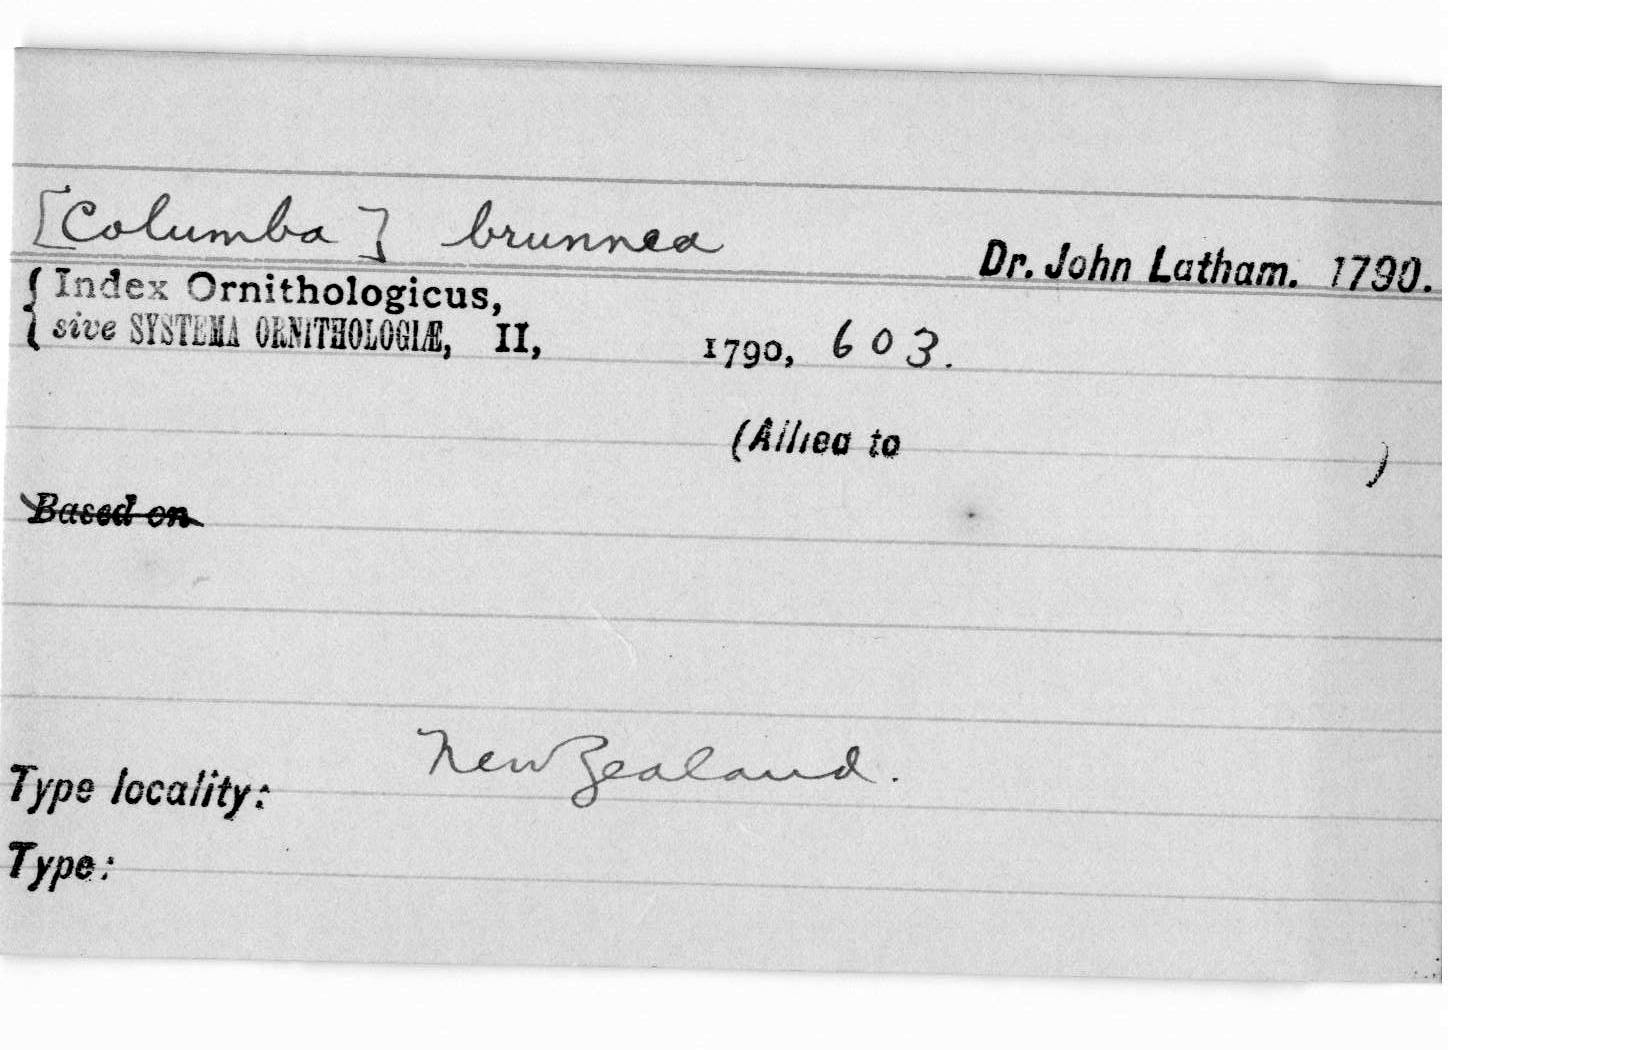 [Columba] brunnea
Dr. John Latham. 1790.
{ Index Ornithologicus,
sive SYSTEMA ORNITHOLOGIÆ, II, 1790, 603.
(Allied to )
Based on
New Zealand.
Type locality:
Type: